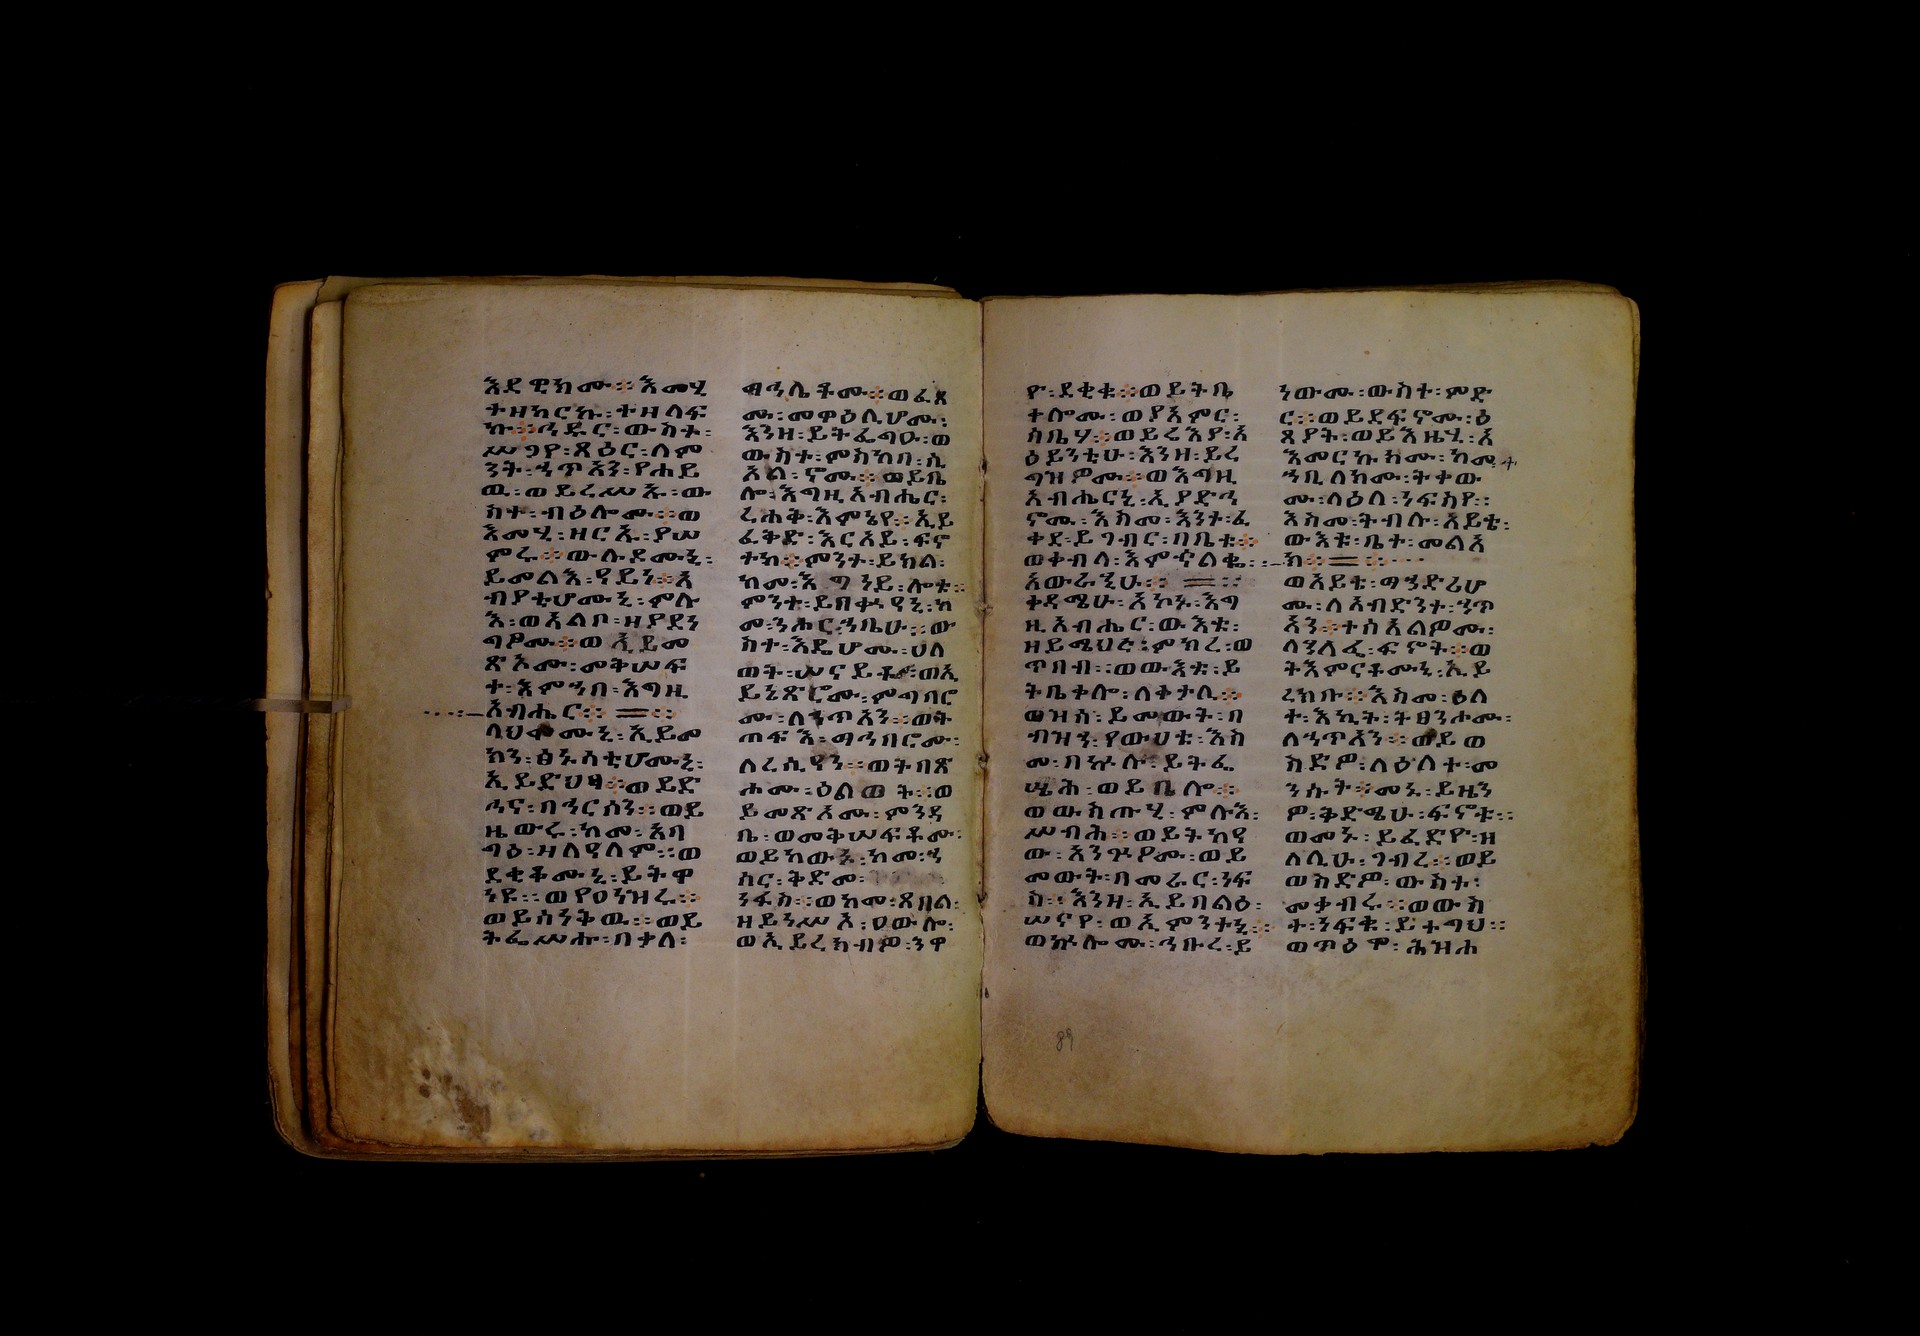 እደዊክሙ ። እመሂ
ተዘከርኩ ፡ ተዘለፍ
ኩ ። ኀዱር ፡ ውስተ ፡
ሥጋየ ፡ ጸዕር ፡ ለም
ንት ፡ ኃጥአን ፡ የሐይ
ዉ ፡ ወይረሥኡ ፡ ው
ስተ ፡ ብዕሎሙ ። ወ
እመሂ ፡ ዘርኡ ፡ ያሠ
ምሩ ። ውሉደሙኒ ፡
ይመልእ ፡ ዓይነ ። አ
ብያቲሆሙኒ ፡ ምሉ
እ ፡ ወአልቦ ፡ ዘያደን
ግፆሙ ። ወኢይመ
ጽኦሙ ፡ መቅሠፍ
ት ፡ እምኀበ ፡ እግዚ
አብሔር ። ። 
ላህሞሙኒ ፡ ኢይመ
ክን ፡ ፅኑሳቲሆሙኒ ፡
ኢይድህፃ ። ወይድ
ኅና ፡ በኀርሰን ። ወይ
ዜውሩ ፡ ከመ ፡ አባ
ግዕ ፡ ዘለዓለም ። ወ
ደቂቆሙኒ ፡ ይትዋ
ነዩ ። ወየዐንዝሩ ።
ወይሰንቅዉ ። ወይ
ትፌሥሑ ፡ በቃለ ፡
ማኅሌቶሙ ። ወፈጸ
ሙ ፡ መዋዕሊሆሙ ፡
እንዘ ፡ ይትፈግዑ ፡ ወ
ውስተ ፡ ምስካበ ፡ ሲ
ኦል ፡ ኖሙ ። ወይቤ
ሎ ፡ እግዚአብሔር ፡
ረሐቅ ፡ እምኔየ ። ኢይ
ፈቅድ ፡ እርአይ ፡ ፍኖ
ተከ ። ምንት ፡ ይክል ፡
ከመ ፡ እግንይ ፡ ሎቱ ።
ምንተ ፡ ይበቍዓኒ ፡ ከ
መ ፡ ንሑር ፡ ኀቤሁ ። ው
ስተ ፡ እዴሆሙ ፡ ሀለ
ወት ፡ ሠናይቶሙ ፡ ወኢ
ይኔጽሮሙ ፡ ምግባሮ
ሙ ፡ ለኃጥአን ። ወት
ጠፍእ ፡ ማኅበሮሙ ፡
ለረሲዓን ። ወትበጽ
ሖሙ ፡ ዕልወት ። ወ
ይመጽኦሙ ፡ ምንዳ
ቤ ፡ ወመቅሠፍቶሙ ፡
ወይከውኑ ፡ ከመ ፡ ኀ
ሰር ፡ ቅድመ ፡
ነፋስ ። ወከመ ፡ ጸበል ፡
ዘይነሥኦ ፡ ዐውሎ ፡
ወኢይረክብዎ ፡ ንዋ
ዮ ፡ ደቂቁ ። ወይትቤ
ቀሎሙ ፡ ወያአምር ፡
ከቤሃ ። ወይሬእያ ፡ አ
ዕይንቲሁ ፡ እንዘ ፡ ይረ
ግዝዎሙ ። ወእግዚ
አብሔርኒ ፡ ኢያድኅ
ኖሙ ፡ እስመ ፡ እንተ ፡ ፈ
ቀደ ፡ ይገብር ፡ በቤቱ ።
ወቀብላ ፡ እምኍልቁ ።
አውራኂሁ ። ።
ቀዳሚሁ ፡ አኮኑ ፡ እግ
ዚአብሔር ፡ ውእቱ ፡
ዘይሜህሮ ፡ ምክረ ፡ ወ
ጥበብ ። ወውእቱ ፡ ይ
ትቤቀሎ ፡ ለቀታሊ ።
ወዝሰ ፡ ይመውት ፡ በ
ብዝኀ ፡ የውሀቱ ፡ እስ
መ ፡ በኵሉ ፡ ይትፌ
ሣሕ ፡ ወይቤሎ ።
ወውስጡሂ ፡ ምሉእ ፡
ሥብሕ ። ወይትከዓ
ው ፡ አንጕዖሙ ፡ ወይ
መውት ፡ በመራር ፡ ነፍ
ስ ። እንዘ ፡ ኢይበልዕ ፡
ሠናየ ፡ ወኢምንተኒ ።
ወኵሎሙ ፡ ኅቡረ ፡ ይ
ነውሙ ፡ ውስተ ፡ ምድ
ር ። ወይደፍኖሙ ፡ ዕ
ጸያት ፡ ወይእዜሂ ፡ አ
አመርኩክሙ ፡ ከመ
ኀቢለክሙ ፡ ትቀው
ሙ ፡ ላዕለ ፡ ነፍስየ ።
እስመ ፡ ትብሉ ፡ አይቴ ፡
ውእቱ ፡ ቤተ ፡ መልአ
ክ ። ።
ወአይቱ ፡ ማኅድሪሆ
ሙ ፡ ለአብድንተ ፡ ኃጥ
አን ። ተስእልዎሙ ፡
ላኀላፈ ፡ ፍኖት ። ወ
ትእምርቶሙኒ ፡ ኢይ
ረክቡ ። እስመ ፡ ዕለ
ተ ፡ እኪት ፡ ትፀንሖሙ ፡
ለኀጥአን ። ወይወ
ስድዎ ፡ ለዕለተ ፡ መ
ንሱት ። መኑ ፡ ይዜን
ዎ ፡ ቅድሜሁ ፡ ፍኖቶ ።
ወመኑ ፡ ይፈድዮ ፡ ዘ
ለሊሁ ፡ ገብረ ። ወይ
ወስድዎ ፡ ውስተ ፡
መቃብሩ ። ወውስ
ተ ፡ ነፍቁ ፡ ይተግህ ።
ወጥዕሞ ፡ ሕዝሐ
89